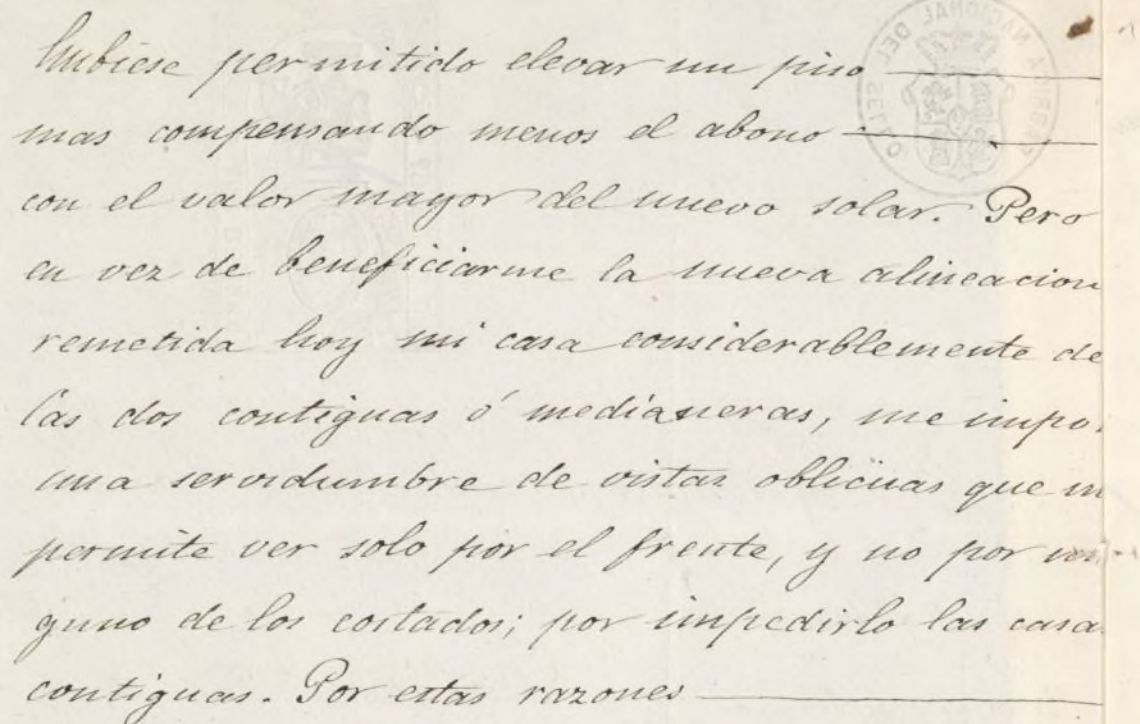 hubiese permitido elevar un piso
mas compensando menos el abono
con el valor mayor del nuevo solar. Pero
en vez de beneficiarme la nueva alineacion
remetida hoy mi casa considerablemente de
las dos contiguas ó medianeras, me impo
una servidumbre de vistas oblicuas que m
permite ver solo por el frente, y no por nin
guno de los costados; por impedirlo las casa
contiguas. Por estas razones